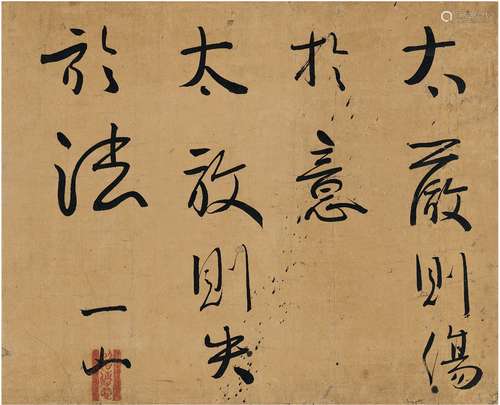 太嚴則傷
於意
太放則失
於法
一山